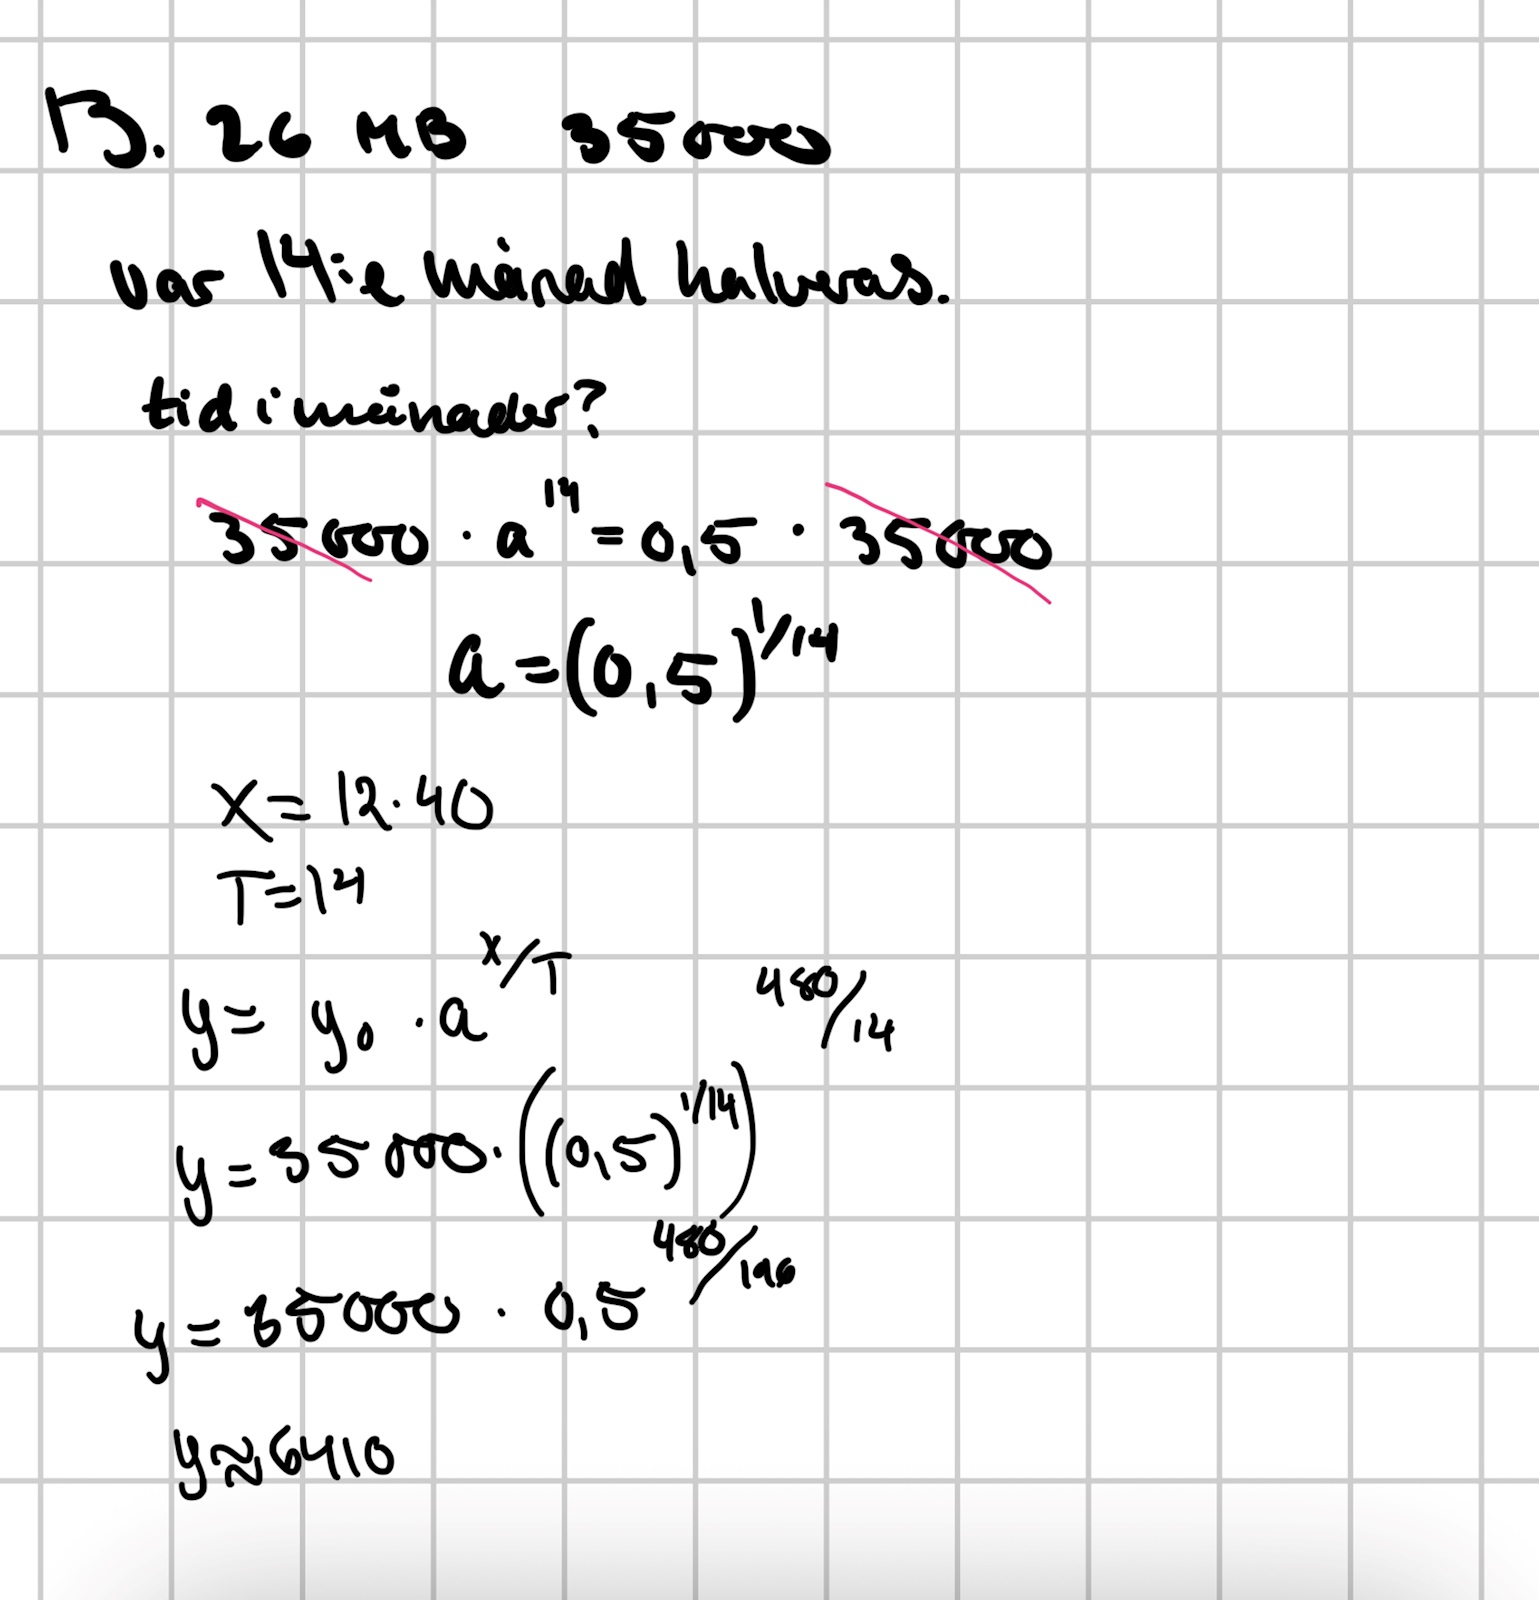 13. 26 MB 35000
var 14:e månad halveras.
tid i månader?
35000 · a^14 = 0,5 · 35000
a = (0,5)^1/14
x = 12·40
T = 14
y = y₀ · a^x/T
y = 35000 · ((0,5)^1/14)^480/14
y = 35000 · 0,5^480/196
y ≈ 6410